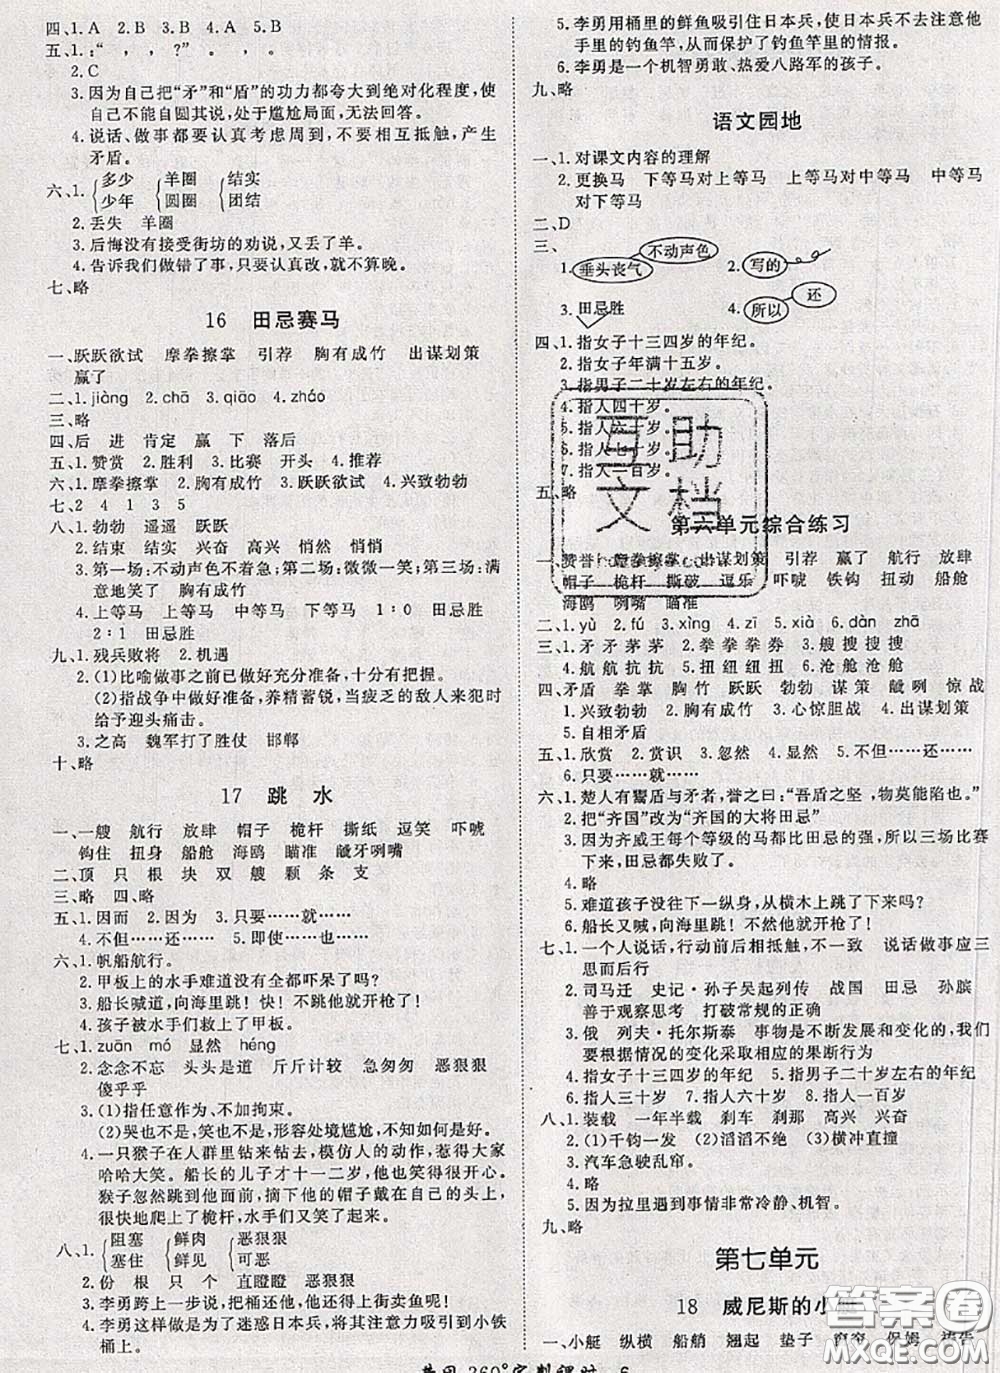 四、1. A 2. B 3. B 4. A 5. B
五、1. :“ , , ?” 。 , 。
2. C
3. 因为自己把“矛”和“盾”的功力都夸大到绝对化程度,使
自己不能自圆其说,处于尴尬局面,无法回答。
4. 说话、做事都要认真考虑周到,不要相互抵触,产生
矛盾。
六、1. 多少 羊圈 结实
少年 圆圈 团结
2. 丢失 羊圈
3. 后悔没有接受街坊的劝说,又丢了羊。
4. 告诉我们做错了事,只要认真改,就不算晚。
七、略
16 田忌赛马
一、跃跃欲试 摩拳擦掌 引荐 胸有成竹 出谋划策
赢了
二、1. jiàng 2. chā 3. qiāo 4. zháo
三、略
四、后 进 肯定 赢 下 落后
五、1. 赞赏 2. 胜利 3. 比赛 开头 4. 推荐
六、1. 摩拳擦掌 2. 胸有成竹 3. 跃跃欲试 4. 兴致勃勃
七、2 4 1 3 5
八、1. 勃勃 遥遥 跃跃
2. 结束 结实 兴奋 高兴 悄然 悄悄
3. 第一场:不动声色不着急;第二场:微微一笑;第三场:满
意地笑了 胸有成竹
4. 上等马 上等马 中等马 下等马 1∶0 田忌
2∶1 田忌胜
九、1. 残兵败将 2. 机遇
2. (1)比喻做事之前已做好充分准备,十分有把握。
(2)指战争中做好准备,养精蓄锐,当疲乏的敌人来犯时
给予迎头痛击。
3. 之高 魏军打了胜仗 邯郸
十、略
17 跳水
一、一艘 航行 放肆 帽子 桅杆 撕纸 逗笑 吓唬
钩住 扭身 船舱 海鸥 瞄准 龇牙咧嘴
二、顶 只 根 块 双 艘 颗 条 支
三、略 四、略
五、1. 因而 2. 因为 3. 只要……就……
4. 不但……还…… 5. 即使……也……
六、1. 帆船航行。
2. 甲板上的水手难道没有全都吓呆了吗?
3. 船长喊道,向海里跳!快!不跳他就开枪了!
4. 孩子被水手们救上了甲板。
七、1. zuān mó 显然 héng
2. 念念不忘 头头是道 斤斤计较 急匆匆 恶狠狠
傻乎乎
3. (1)指任意作为、不加拘束。
(2)哭也不是,笑也不是,形容处境尴尬,不知如何是好。
4. 一只猴子在人群里钻来钻去,模仿人的动作,惹得大家
哈哈大笑。船长的儿子才十一二岁,他也笑得很开心。
猴子忽然跳到他面前,摘下他的帽子戴在自己的头上,
很快地爬上了桅杆,水手们又笑了起来。
八、1. 阻塞 鲜肉 恶狠狠
塞住 鲜见 可恶
2. 份 根 只 个 直瞪瞪 恶狠狠
3. 李勇跨上一步说,把桶还他,他好上街卖鱼呢!
4. 李勇这样做是为了迷惑日本兵,将其注意力吸引到小铁
桶上。
5. 李勇用桶里的鲜鱼吸引住日本兵,使日本兵不去注意他
手里的钓鱼竿,从而保护了钓鱼竿里的情报。
6. 李勇是一个机智勇敢、热爱八路军的孩子。
九、略
语文园地
一、1. 对课文内容的理解
2. 更换马 下等马对上等马 上等马对中等马 中等马
对下等马
二、D
三、
1. 垂头丧气 不动声色 2. 写的
3. 田忌胜 4. 所以 还
四、1. 指女子十三四岁的年纪。
2. 指女子年满十五岁。
3. 指男子二十岁左右的年纪。
4. 指人四十岁。
5. 指人六十岁。
6. 指人七十岁。
7. 指人一百岁。
五、略
互助
文档
第六单元综合练习
一、赞誉 摩拳擦掌 出谋划策 引荐 赢了 航行 放肆
帽子 桅杆 撕破 逗乐 吓唬 铁钩 扭动 船舱
海鸥 咧嘴 瞄准
二、1. yù 2. fú 3. xìng 4. zī 5. xià 6. dàn zhá
三、1. 矛 矛 茅 茅 2. 拳 拳 拳 券 3. 艘 搜 搜 搜
4. 航 航 抗 抗 5. 扭 纽 纽 扭 6. 沧 舱 沧 舱
四、矛盾 拳掌 胸竹 跃跃 勃勃 谋策 龇咧 惊战
1. 兴致勃勃 2. 胸有成竹 3. 心惊胆战 4. 出谋划策
5. 自相矛盾
五、1. 欣赏 2. 赏识 3. 忽然 4. 显然 5. 不但……还……
6. 只要……就……
六、1. 楚人有鬻盾与矛者,誉之曰:“吾盾之坚,物莫能陷也。”
2. 把“齐国”改为“齐国的大将田忌”
3. 因为齐威王每个等级的马都比田忌的强,所以三场比赛
下来,田忌都失败了。
4. 略
5. 难道孩子没往下一纵身,从横木上跳了下来吗?
6. 船长又喊,向海里跳!不然他就开枪了!
七、1. 一个人说话,行动前后相抵触,不一致 说话做事应三
思而后行
2. 司马迁 史记·孙子吴起列传 战国 田忌 孙膑
善于观察思考 打破常规的正确
3. 俄 列夫·托尔斯泰 事物是不断发展和变化的,我们
要根据情况的变化采取相应的果断行为
4. 指女子十三四岁的年纪 5. 指男子二十岁左右的年纪
6. 指人三十岁 7. 指人六十岁 8. 指人一百岁
八、1. 装载 一年半载 刹车 刹那 高兴 兴奋
2. (1)千钧一发 (2)滔滔不绝 (3)横冲直撞
3. 汽车急驶乱窜。
4. 略
5. 因为拉里遇到事情非常冷静、机智。
九、略
第七单元
18 威尼斯的小艇
一、小艇 纵横 船艄 翘起 垫子 窗帘 保姆 祷告
答案圈